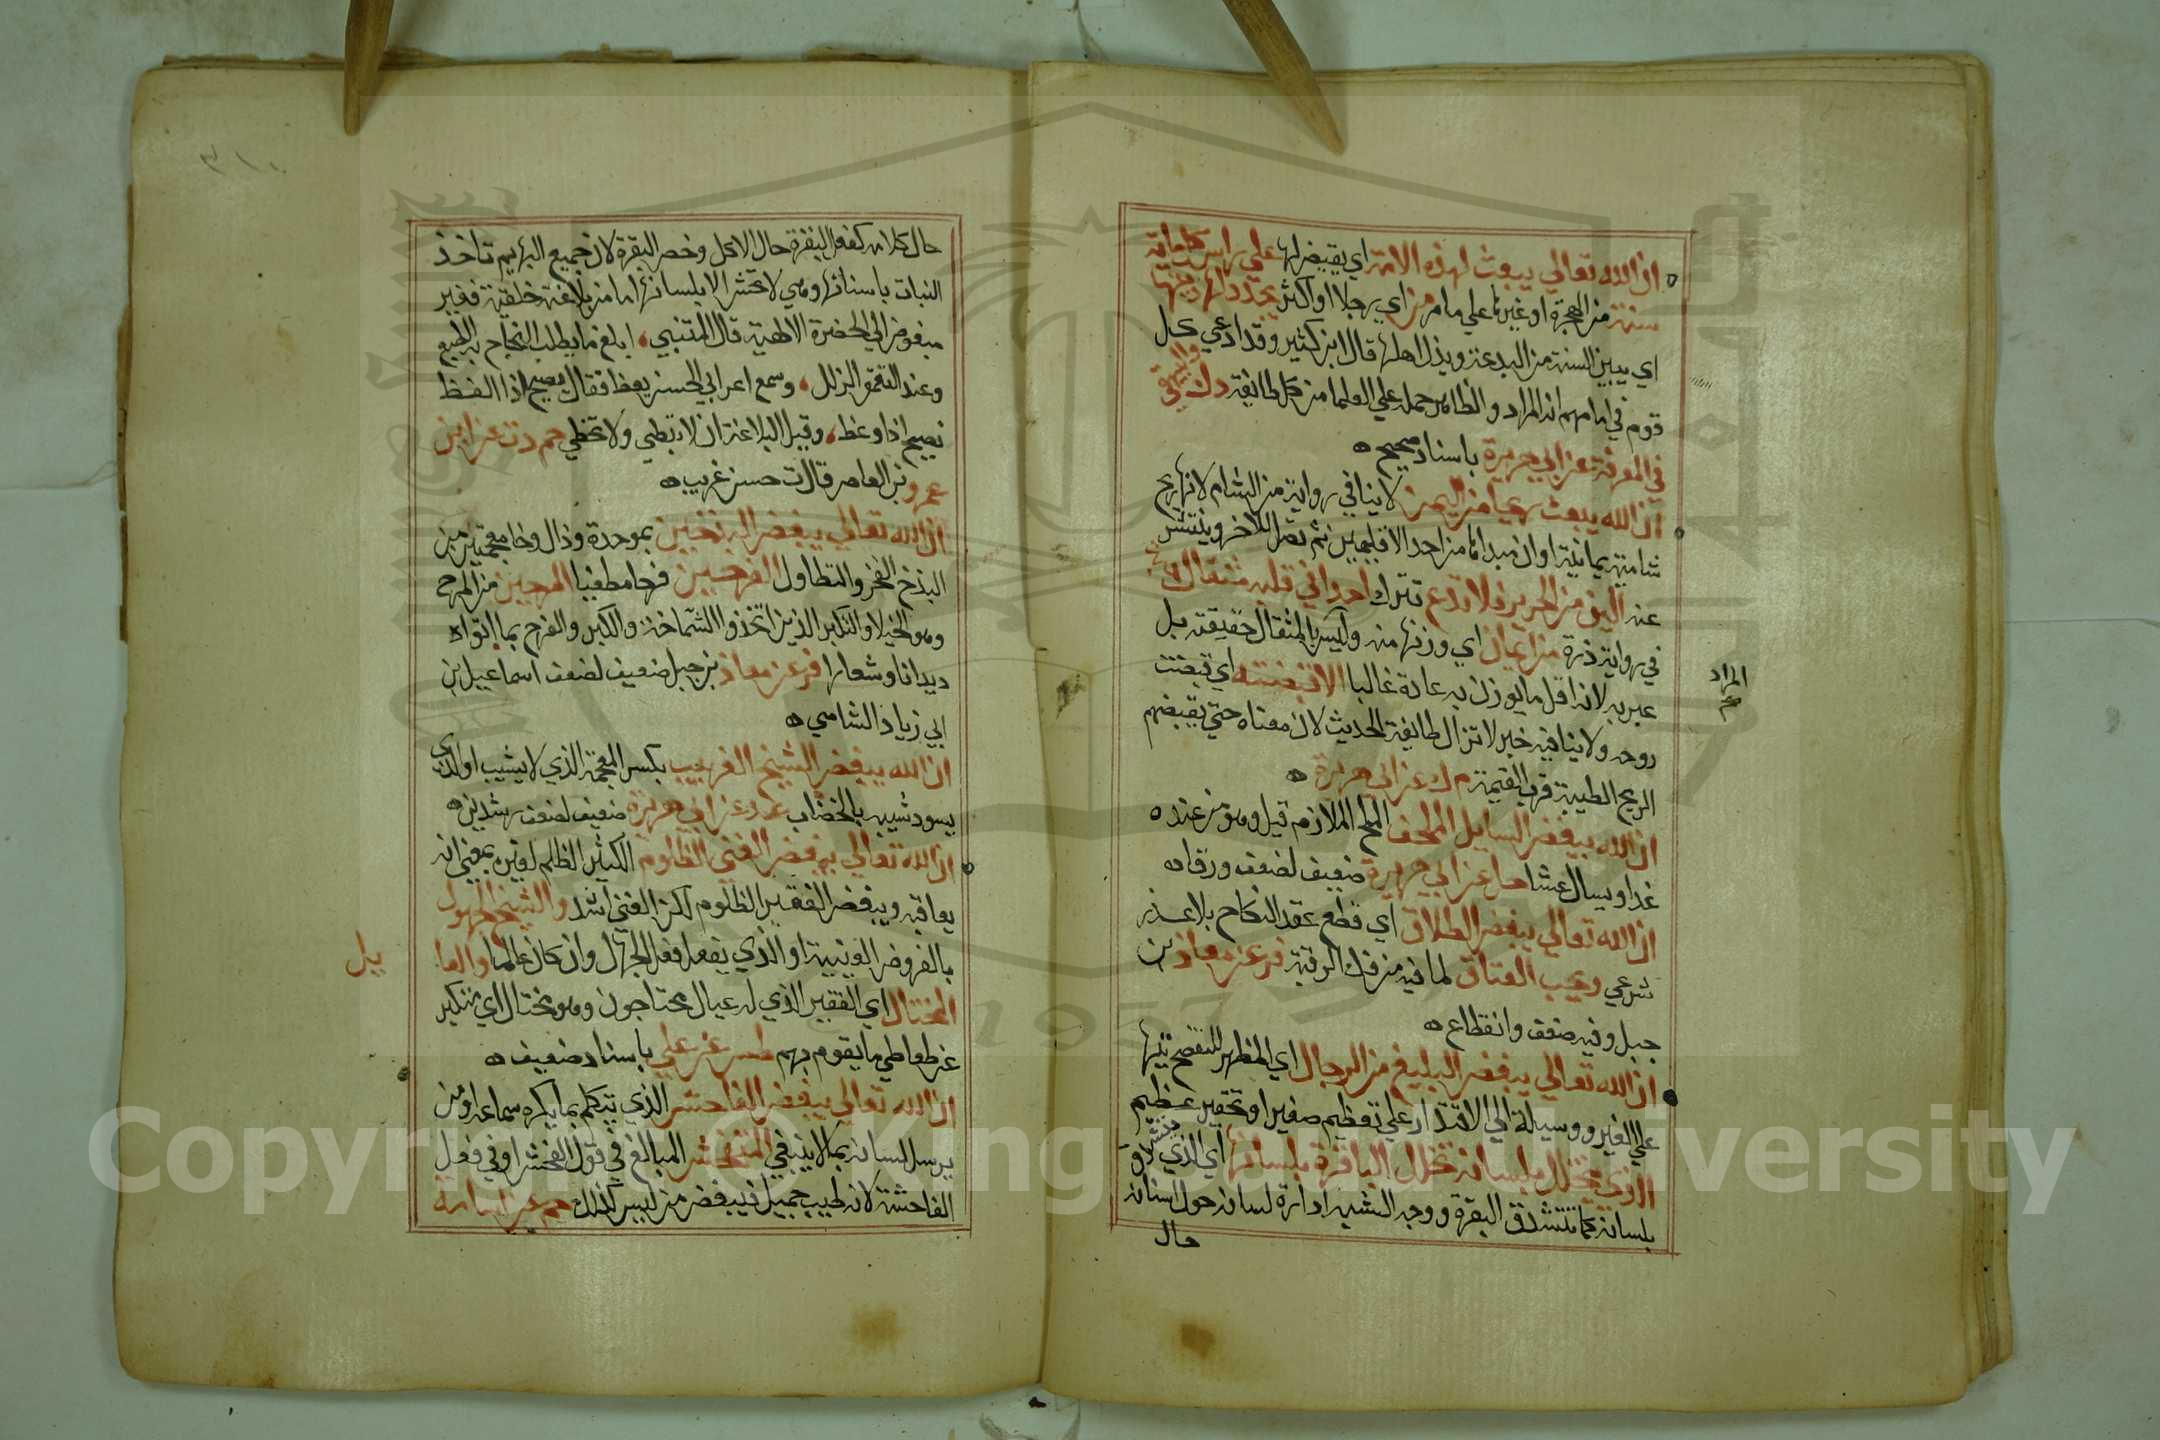 ان الله تعالي يبعث لهذه الامة اي يقيض لها علي راس كل ماية
سنة من الهجرة او غيرها علي ما مر من اي رجلا او اكثر يجدد لها دينها
اي يبين السنة من البدعة ويذل اهلها قال ابن كثير وقد ادعي كل
قوم في امامهم انه المراد والظاهر حمله علي العلما من كل طائفة د ك والبيهقي
في المعرفة عن ابي هريرة باسناد صحيح ه
ان الله يبعث ريحا من اليمن لا ينافي رواية من الشام لانها ريح
شامية يمانية او ان مبداها من احد الاقليمين ثم تصل للاخر وينتشر
عنه الين من الحرير فلا تدع تترك احدا في قلبه مثقال حبة
في رواية ذرة من ايمان اي وزنها منه وليس المثقال حقيقة بل
المراد
عبر به لانه اقل ما يوزن به عادة غالبا الا قبضته اي قبضت
روحه ولا ينافيه خبر لا تزال طائفة الحديث لان معناه حتي تقبضهم
الريح الطيبة قرب القيمة م ك عن ابي هريرة ه
ان الله يبغض السايل الملحف الملح الملازم قيل وهو من عنده
غدا ويسال عشا حل عن ابي هريرة ضعيف لضعف ورقا ه
ان الله تعالي يبغض الطلاق اي قطع عقد النكاح بلا عذر
شرعي ويحب العتاق لما فيه من فك الرقبة فر عن معاذ بن
جبل وفيه ضعف وانقطاع ه
ان الله تعالي يبغض البليغ من الرجال اي المظهر للتفصح تيها
علي الغير ووسيلة الي الاقتدار علي تعظيم صغير او تحقير عظيم
الذي يتخلل بلسانه تخلل الباقرة بلسانها اي الذي يتشدق
بلسانه كما تتشدق البقرة ووجه الشبه ادارة لسانه حول اسنانه
حال
حال كلامه كفعل البقرة حال الاكل وخص البقرة لان جميع البهايم تاخذ
النبات باسنانها وهي لا تحتش الا بلسانها اما من بلاغته خلقية فغير
مبغوض الي الحضرة الالهية قال المتنبي ابلغ ما يطلب النجاح به الطبع
وعند التعمق الزلل وسمع اعرابي الحسن يعظ فقال فصيح اذا لفظ
نصيح اذا وعظ وقيل البلاغة ان لا تبطي ولا تخطي حم د ت عن ابن
عمرو بن العاص قال ت حسن غريب ه
ان الله تعالي يبغض البذخين بموحدة وذال وخا معجمتين من
البذخ الفخر والتطاول الفرحين فرحا مطغيا المرحين من المرح
وهو الخيلا والتكبر الذين اتخذوا الشماخة والكبر والفرح بما اتواه
ديدنا وشعارا فر عن معاذ بن جبل ضعيف لضعف اسماعيل بن
ابي زياد الشامي ه
ان الله يبغض الشيخ الغربيب بكسر المعجمة الذي لا يشيب او الذي
يسود شيبه بالخضاب عد عن ابي هريرة ضعيف لضعف رشدين ه
ان الله تعالي يبغض الغني الظلوم الكثير الظلم لغيره بمعني انه
يعاقبه ويبغض الفقير الظلوم لكن الغني اشد والشيخ الجهول
بالفروض العينية او الذي يفعل فعل الجهال وان كان عالما والعا
يل
المختال اي الفقير الذي له عيال محتاجون وهو مختال اي متكبر
عن تعاطي ما يقوم بهم طس عن علي باسناد ضعيف ه
ان الله تعالي يبغض الفاحش الذي يتكلم بما يكره سماعه او من
يرسل لسانه بما لا ينبغي المتفحش المبالغ في قول الفحش او في فعل
الفاحشة لانه طيب جميل فيبغض من ليس كذلك حم عن اسامة
Copyright © King Saud University
1957